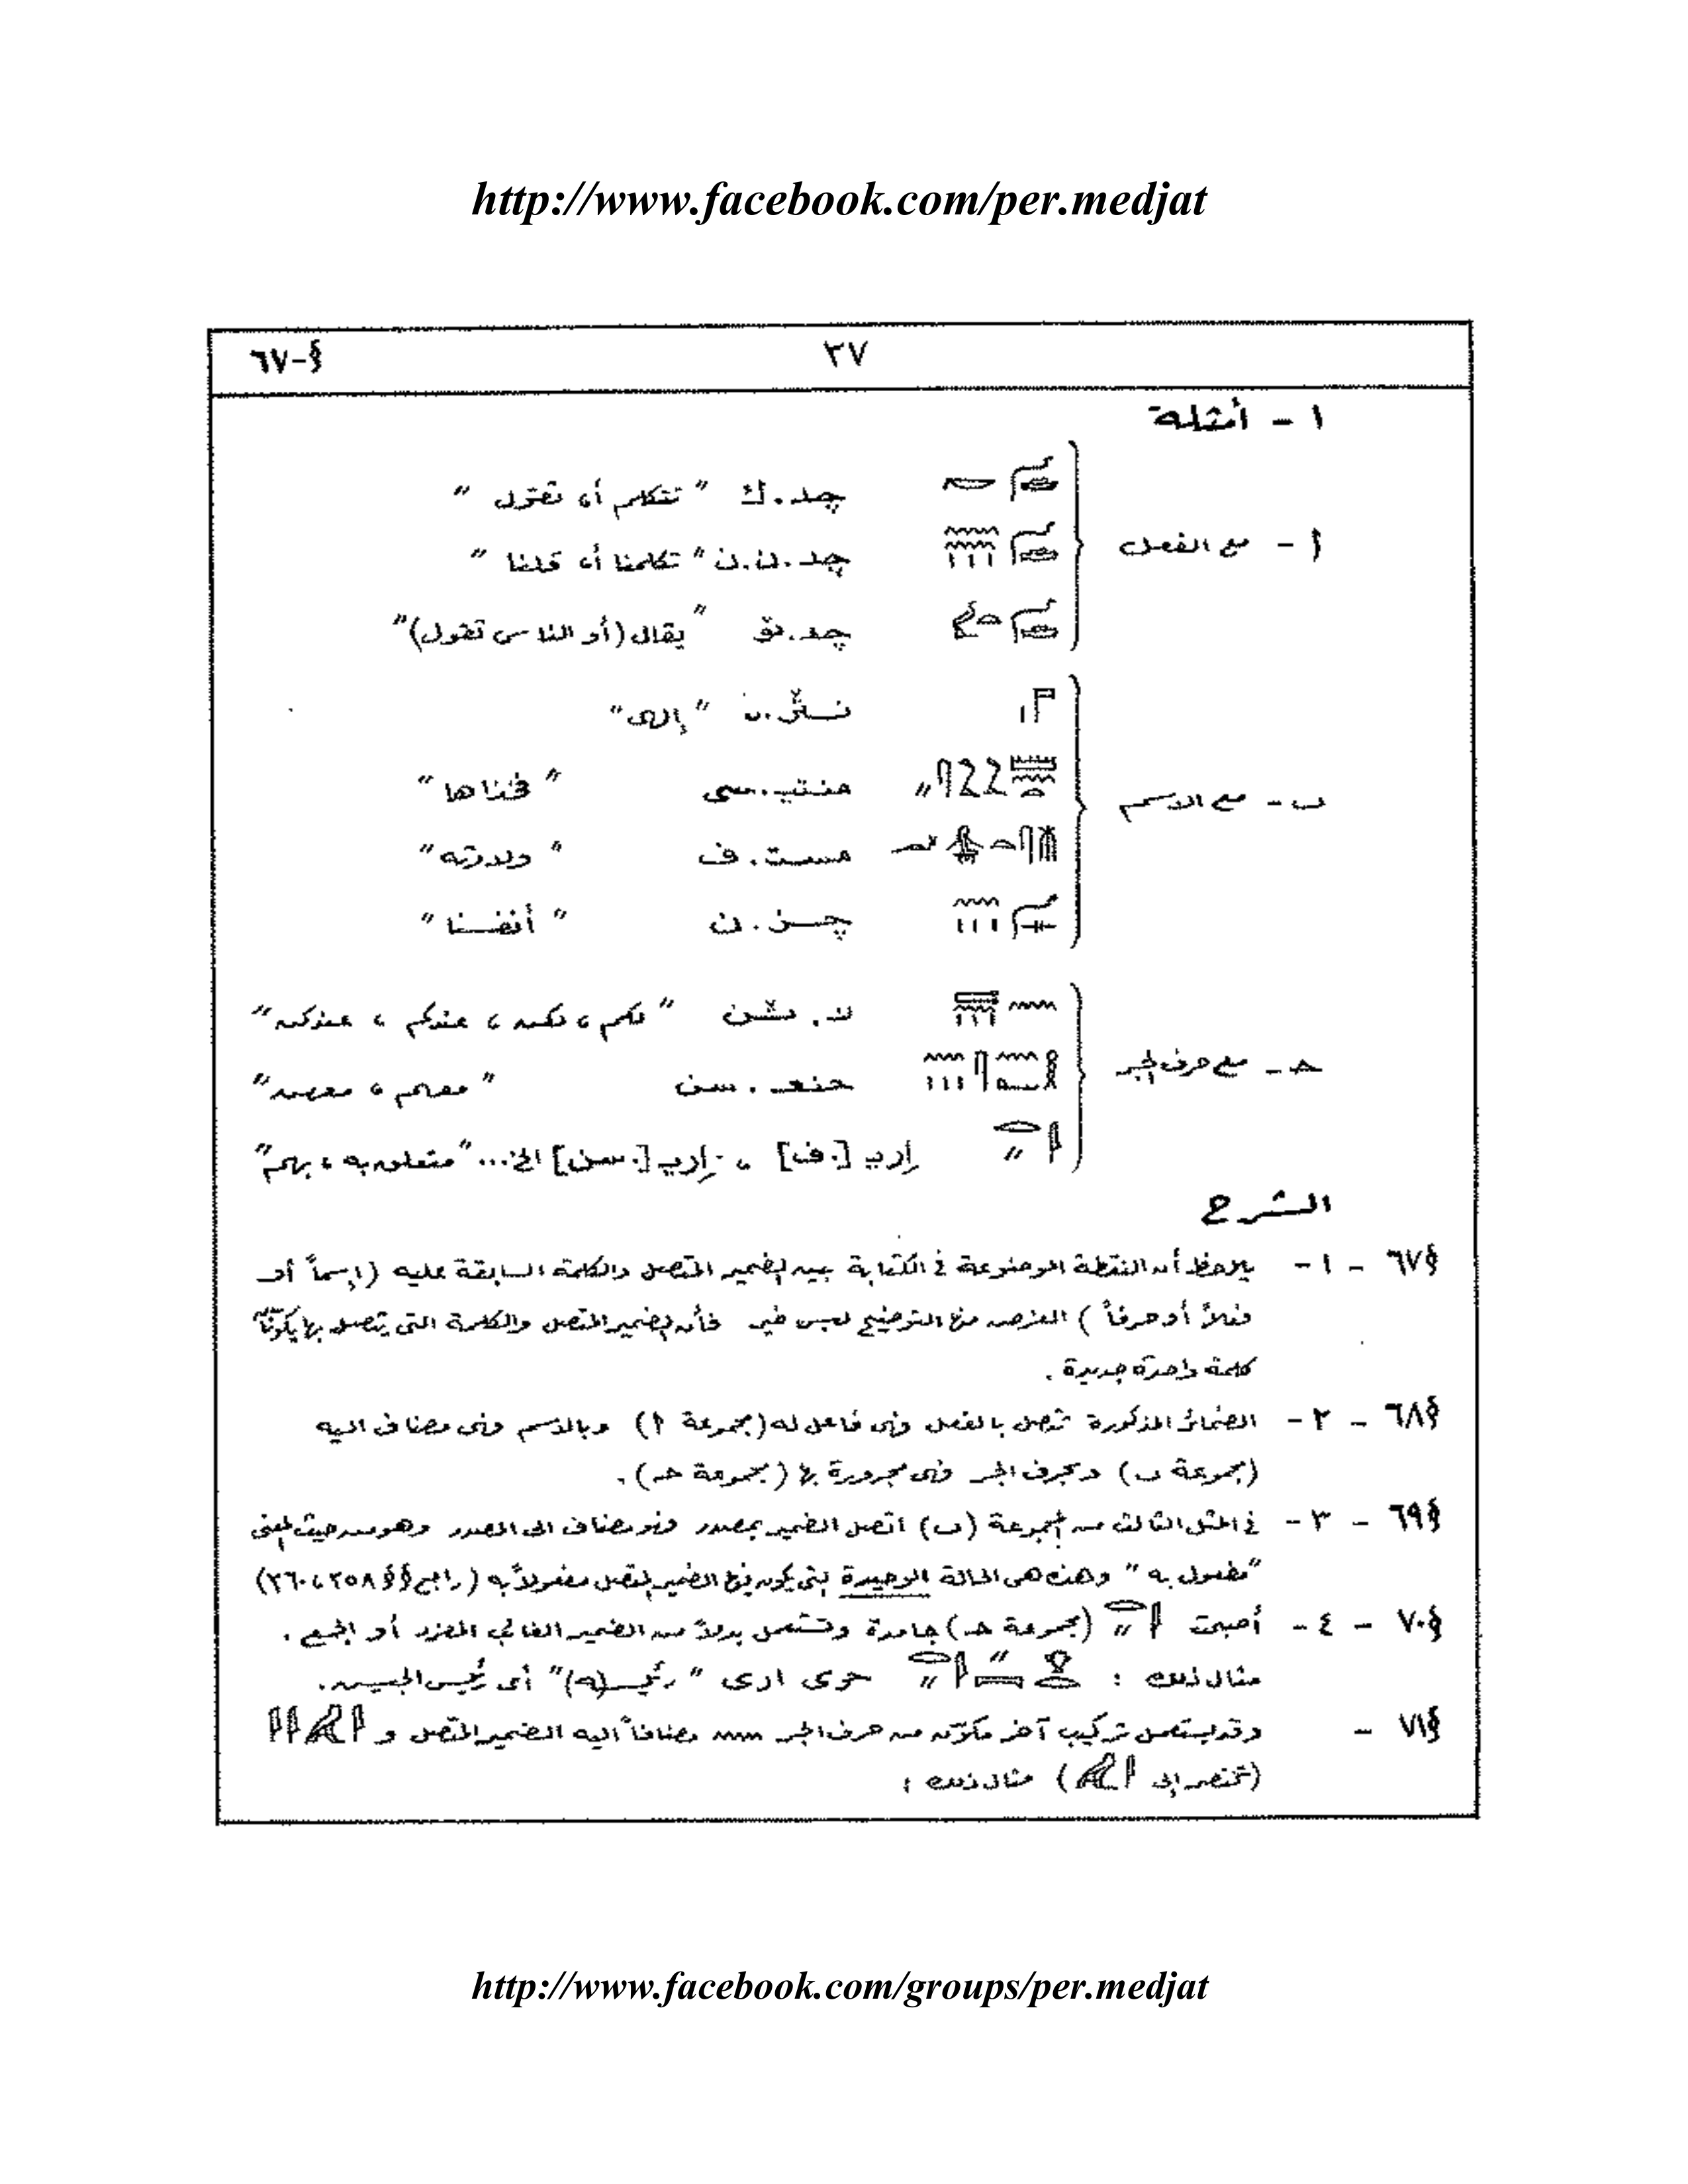 http://www.facebook.com/per.medjat
§-٦٧ ٣٧
١ - أمثلة
چد.ك " تتكلم أى تقول "
أ - مع الفعل چد.ن.ن " تكلمنا أى قلنا "
چد.تو " يقال (أو الناس تقول) "
" إلهى "
ب - مع الاسم منتى.سى " فخذاها "
مست.ف " ولادته "
چس.ن " أنفسنا "
ن. " لكم ، لكن ، عندكم ، عندكن "
حـ - مع حرف الجر حنع.سن " معهم ، معهن "
إرى [.ف] ، إرى [.سن] الخ... " متعلق به ، بهم "
الشرح
§٦٧ - ١ - يلاحظ أن النقطة الموضوعة فى الكتابة بين الضمير المتصل والكلمة السابقة عليه (إسماً أو
فعلاً أو حرفاً) الغرض منها التوضيح ليس غير فأن الضمير المتصل والكلمة التى يتصل بها يكونان
كلمة واحدة جديدة .
§٦٨ - ٢ - الضمائر المذكورة تتصل بالفعل فهى فاعل له (مجموعة أ) وبالاسم فهى مضاف اليه
(مجموعة ب) وبحرف الجر فهى مجرورة بها (مجموعة حـ) .
§٦٩ - ٣ - فى المثل الثالث من المجموعة (ب) اتصل الضمير بمصدر فهو مضاف الى المصدر وهو من حيث المعنى
"مفعول به" وهذه هى الحالة الوحيدة التى يكون فيها الضمير المتصل مفعولاً به (راجع §§ ٢٥٨ ، ٢٦٠)
§٧٠ - ٤ - أصبحت (مجموعة حـ) جامدة وتستعمل بدلاً من الضمير الغائب المفرد أو الجمع .
مثال ذلك : حرى ارى " رئيسـ(ـه) " أى رئيس الجيش .
§٧١ - وقد يستعمل تركيب آخر مكوّن من حرف الجر مضافاً اليه الضمير المتصل و
(تختصر إلى ) مثال ذلك :
http://www.facebook.com/groups/per.medjat